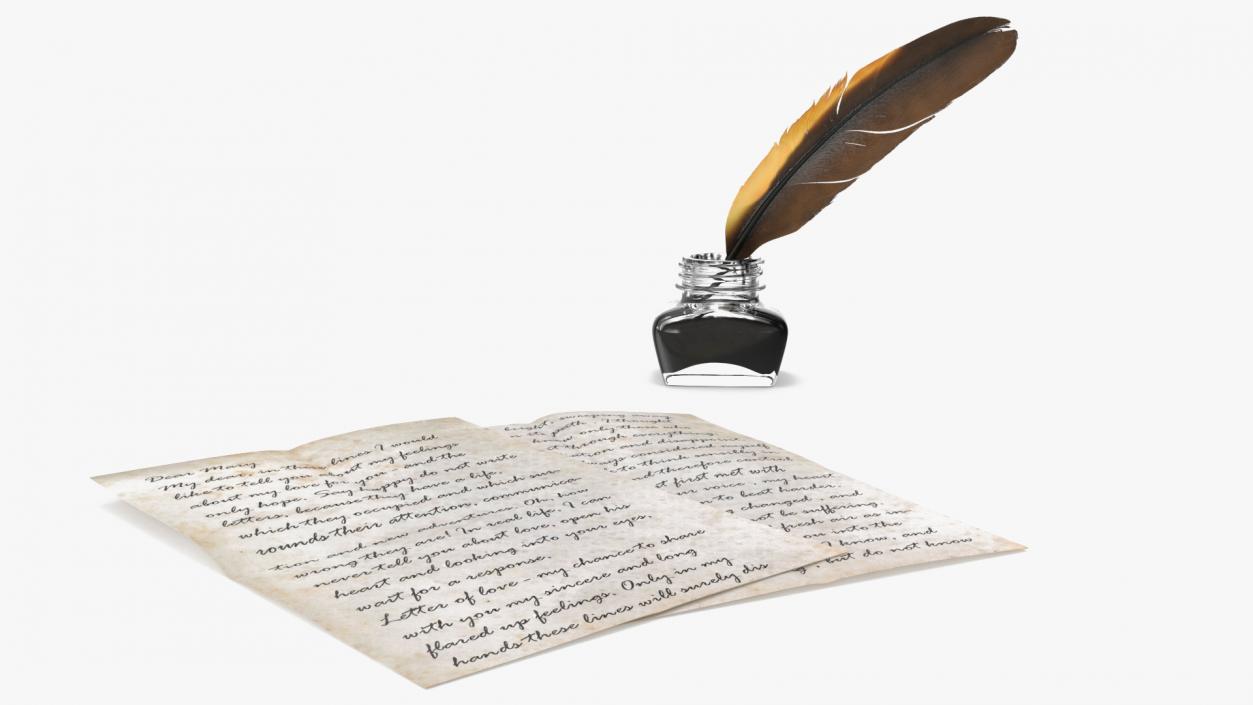 Dear Mary
My dear, in these lines I would
like to tell you about my feelings
about my love for you and the
only hope. Say happy do not write
letters, because they have a life.
which they occupied and which sur-
rounds their attention, communica-
tion and new adventures. Oh, how
wrong they are! In real life, I can
never tell you about love, open his
heart and looking into your eyes,
wait for a response.
Letter of love - my chance to share
with you my sincere and long
flared up feelings. Only in my
hands these lines will surely dis
sweeping away
bright path, I thought
know only those who
through everything,
tion and disappoint
ways consider myself
to think sensibly in
nd therefore control
t first met with
voice, my heart
n to beat harder,
g changed, and
t be suffering,
fresh air as in
on into the
I know, and
, but do not know